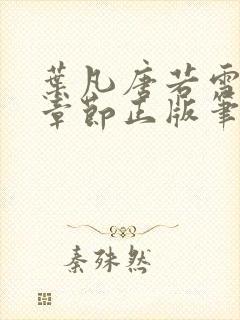 葉凡唐若雪
章節正版筆
秦殊然